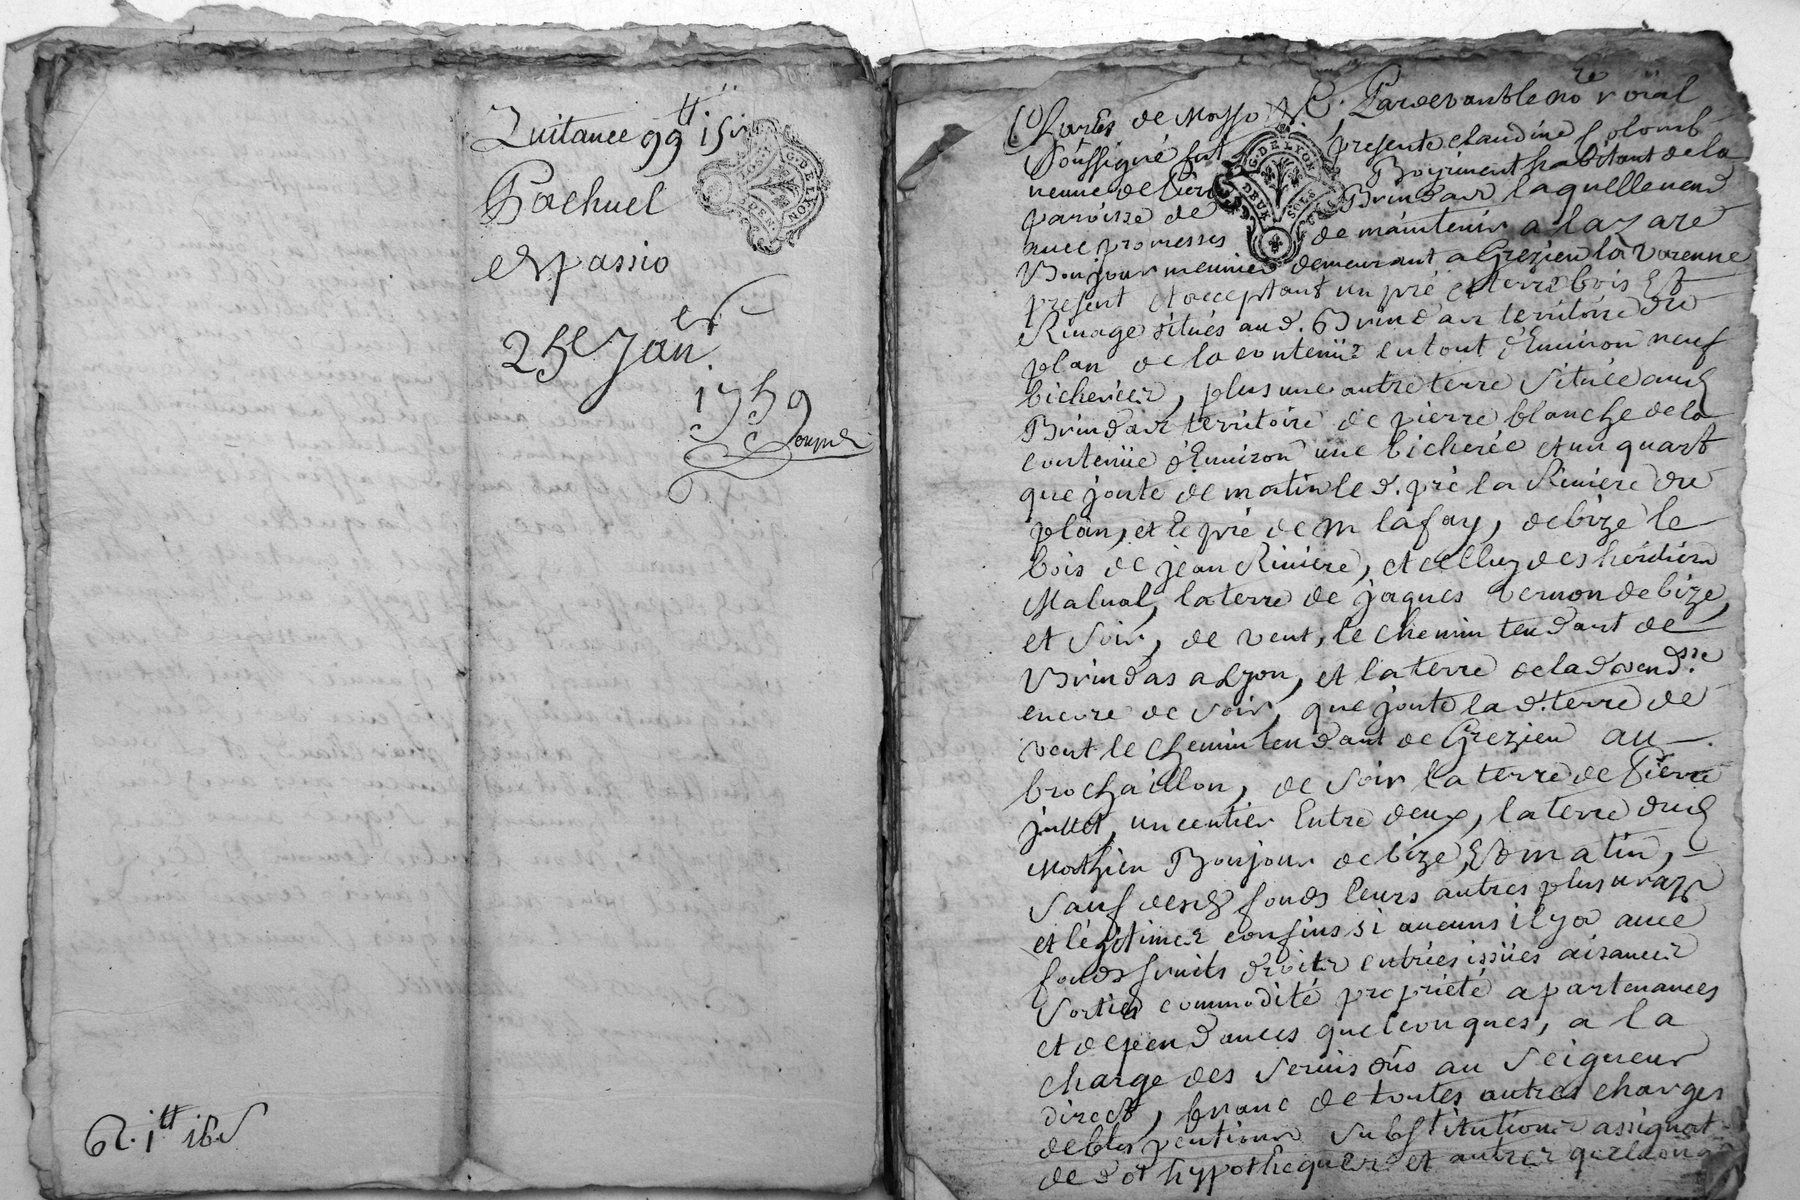 Quitance 99tt 15s
Pachuel
et passio
25e Janer
1759
G. DE LYON
R. 1tt 16s
Pardevant le nore roial
Soussigné fut présente claudine Colomb
G. DE LYON
DEUX SOLS
paroisse de Brindas laquelle vend
avec promesses de maintenir a lazare
Bonjour meunier demeurant a Grezieu la varenne
présent et acceptant un pré et terre bois Et
Rivage situés aud. Brindas territoire du
plan de la contenüe en tout d'Environ neuf
bicherées, plus une autre terre Située aud
Brindas territoire de pierre blanche de la
contenüe d'Environ une bicherée et un quart
que joute de matin le d. pré la Riviere du
plan, et le pré de m lafay, de bize le
bois de jean Riviere, et celluy des héritiers
Malval, la terre de jaques vernon de bize,
et soir, de vent, le chemin tendant de
Brindas a Lyon, et la terre de lad vendsse
encore de soir, que joute la d. terre de
vent le chemin tendant de Grezieu au
brochaillon, de soir la terre de Pierre
un centier Entre deux, la terre dud
Mathieu Bonjour de bize, Et matin,
Sauf desd fonds leurs autres plus vrays
et légitimes confins si aucuns il y a avec
fonds fruits droits entrées issües aisances
Sorties commodité propriété apartenances
et dependances quelconques, a la
charge des servis dûs au Seigneur
direct, franc de toutes autres charges
debtes pentions Substitutions assignat
de dot hypotheques et autres quelconq